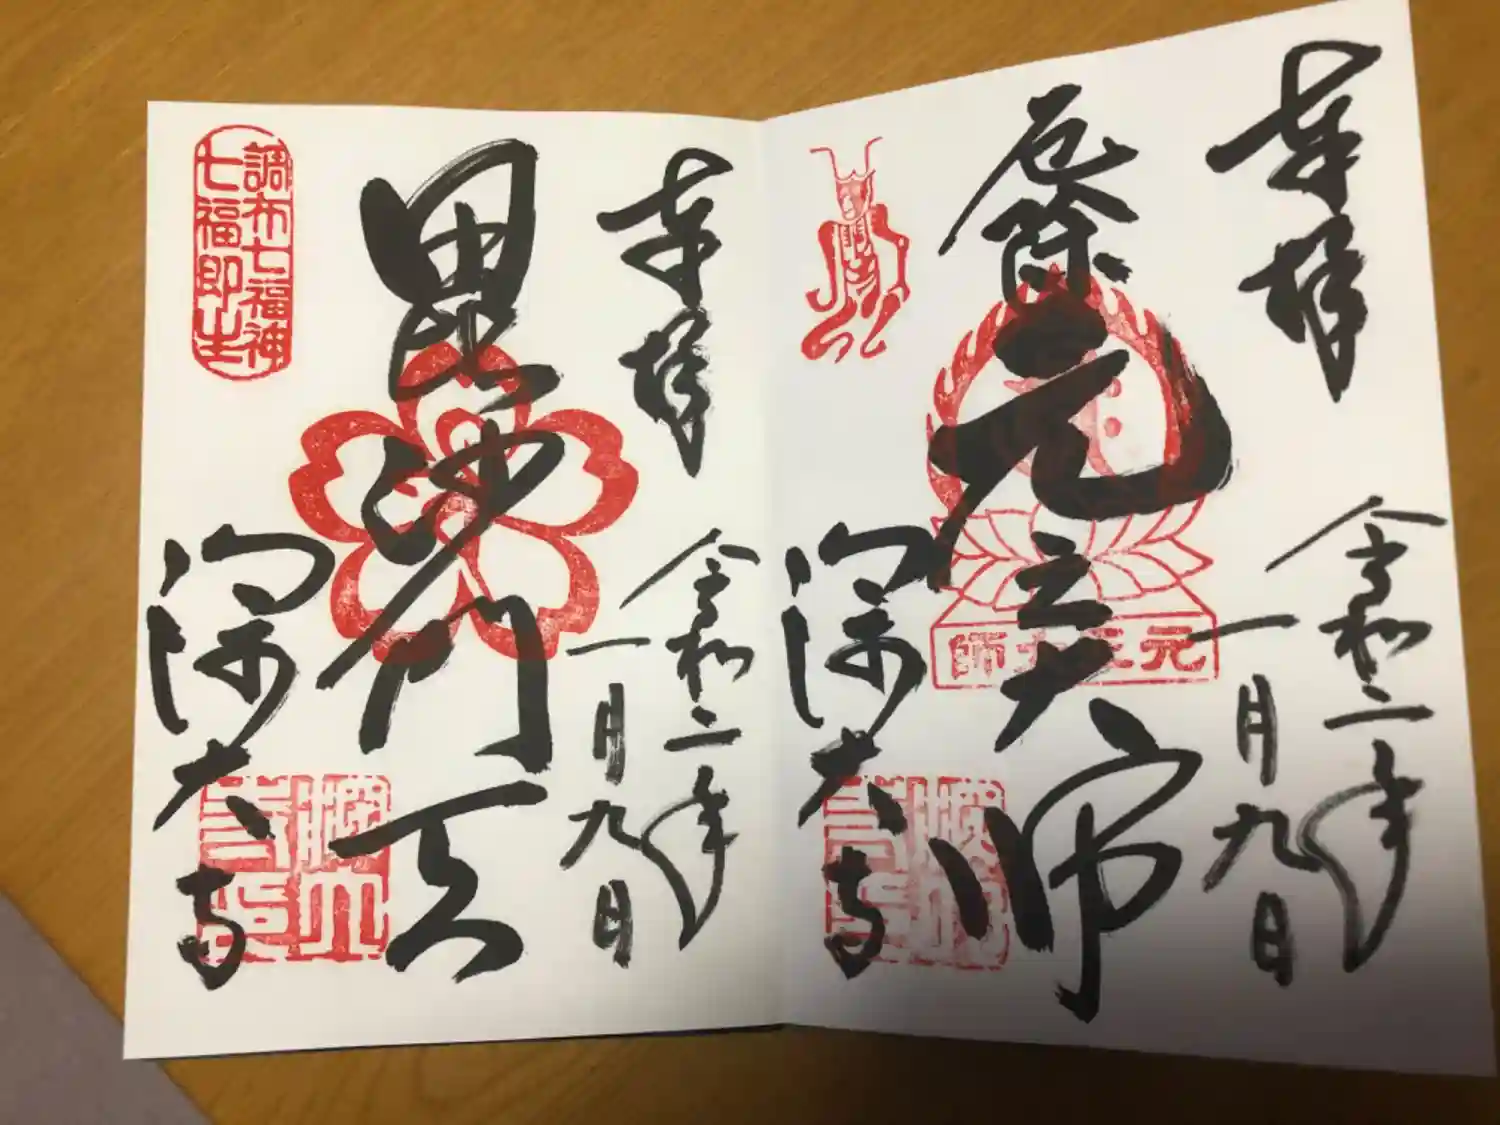 奉拝
令和二年
一月九日
厄除
元三大師
元三大師
深大寺
奉拝
令和二年
一月九日
毘沙門天
深大寺
調布七福神
七福即生